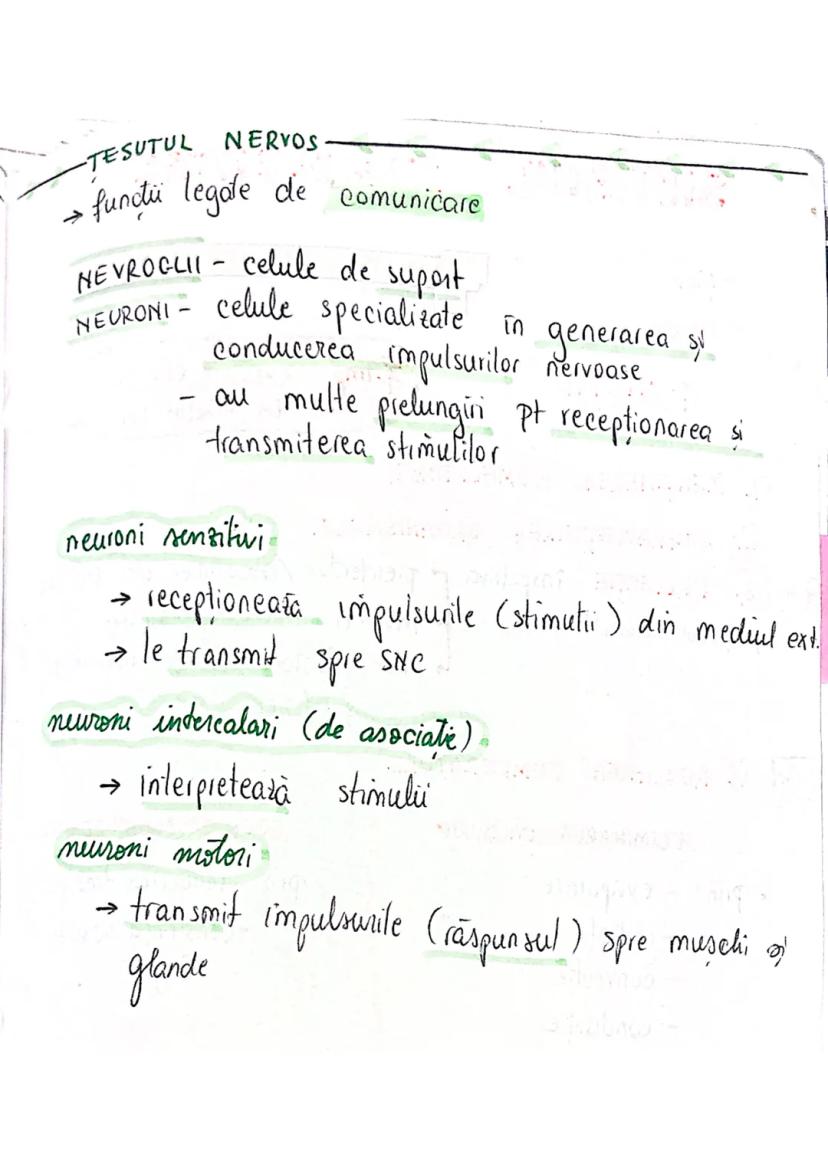 ȚESUTUL NERVOS
→ funcții legate de comunicare
NEVROGLII - celule de suport
NEURONI - celule specializate în generarea și
conducerea impulsurilor nervoase
- au multe prelungiri pt recepționarea și
transmiterea stimulilor
neuroni senzitivi
→ recepționează impulsurile (stimulii) din mediul ext.
→ le transmit spre SNC
neuroni intercalari (de asociație)
→ interpretează stimulii
neuroni motori
→ transmit impulsurile (răspunsul) spre mușchi și
glande